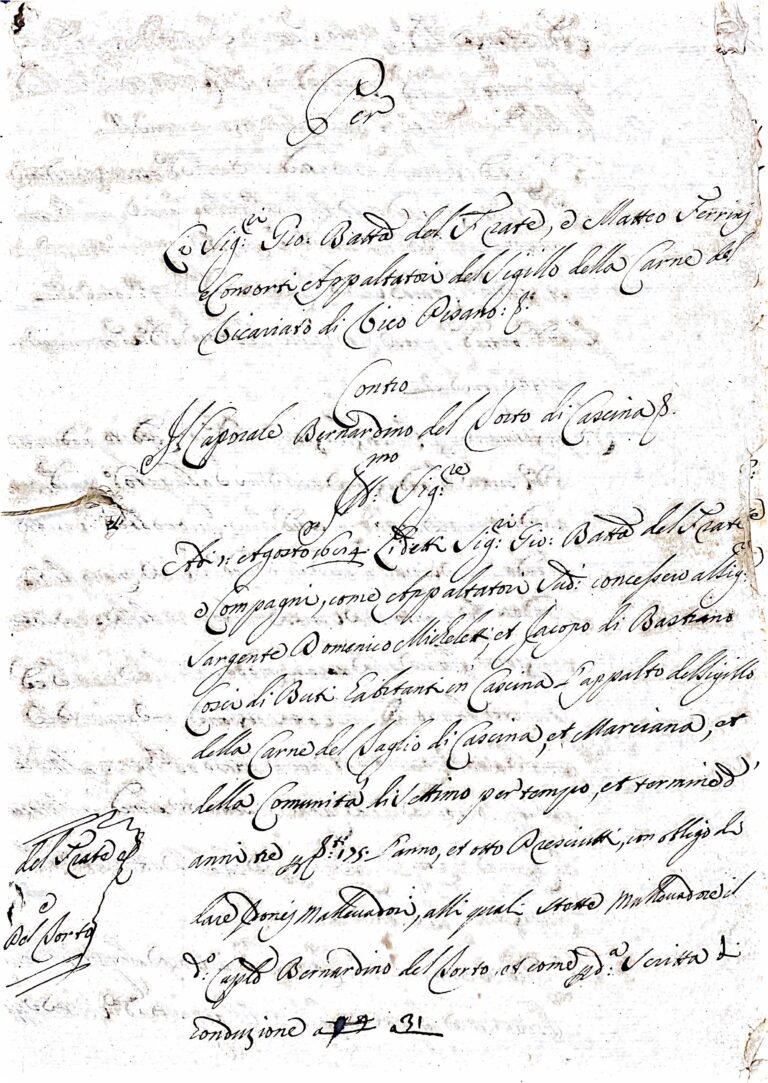 Per
Li Sig:ri Gio: Batta del Frate, e Matteo Ferrinj
e Consorti Appaltatori del Sigillo della Carne del
Vicariato di Vico Pisano:
Contro
Il Caporale Bernardino del Porto di Cascina
Ill:mo Sig:re
Adi Agosto 1674. Li detti Sig:ri Gio: Batta del Frate
e Compagni, come Appaltatori sud:i concessero al Sig:
Sargente Domenico Micheletti, et Jacopo di Bastiano
Cosci di Buti habitanti in Cascina l'appalto del Sigillo
della Carne del Taglio di Cascina, et Marciana, et
della Comunità di Settimo per tempo, et termine d'
anni tre 175 l'anno, et otto Presciutti, con obligo di
dare Idonej Mallevadori, alli quali stette Mallevadore il
d:o Cap:le Bernardino del Porto, et come p d:a Scritta di
Conduzione a 31
del Frate
e
Del Porto